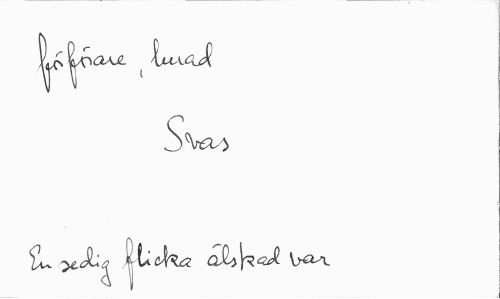 förförare, lurad
Svas
En sedig flicka älskad var